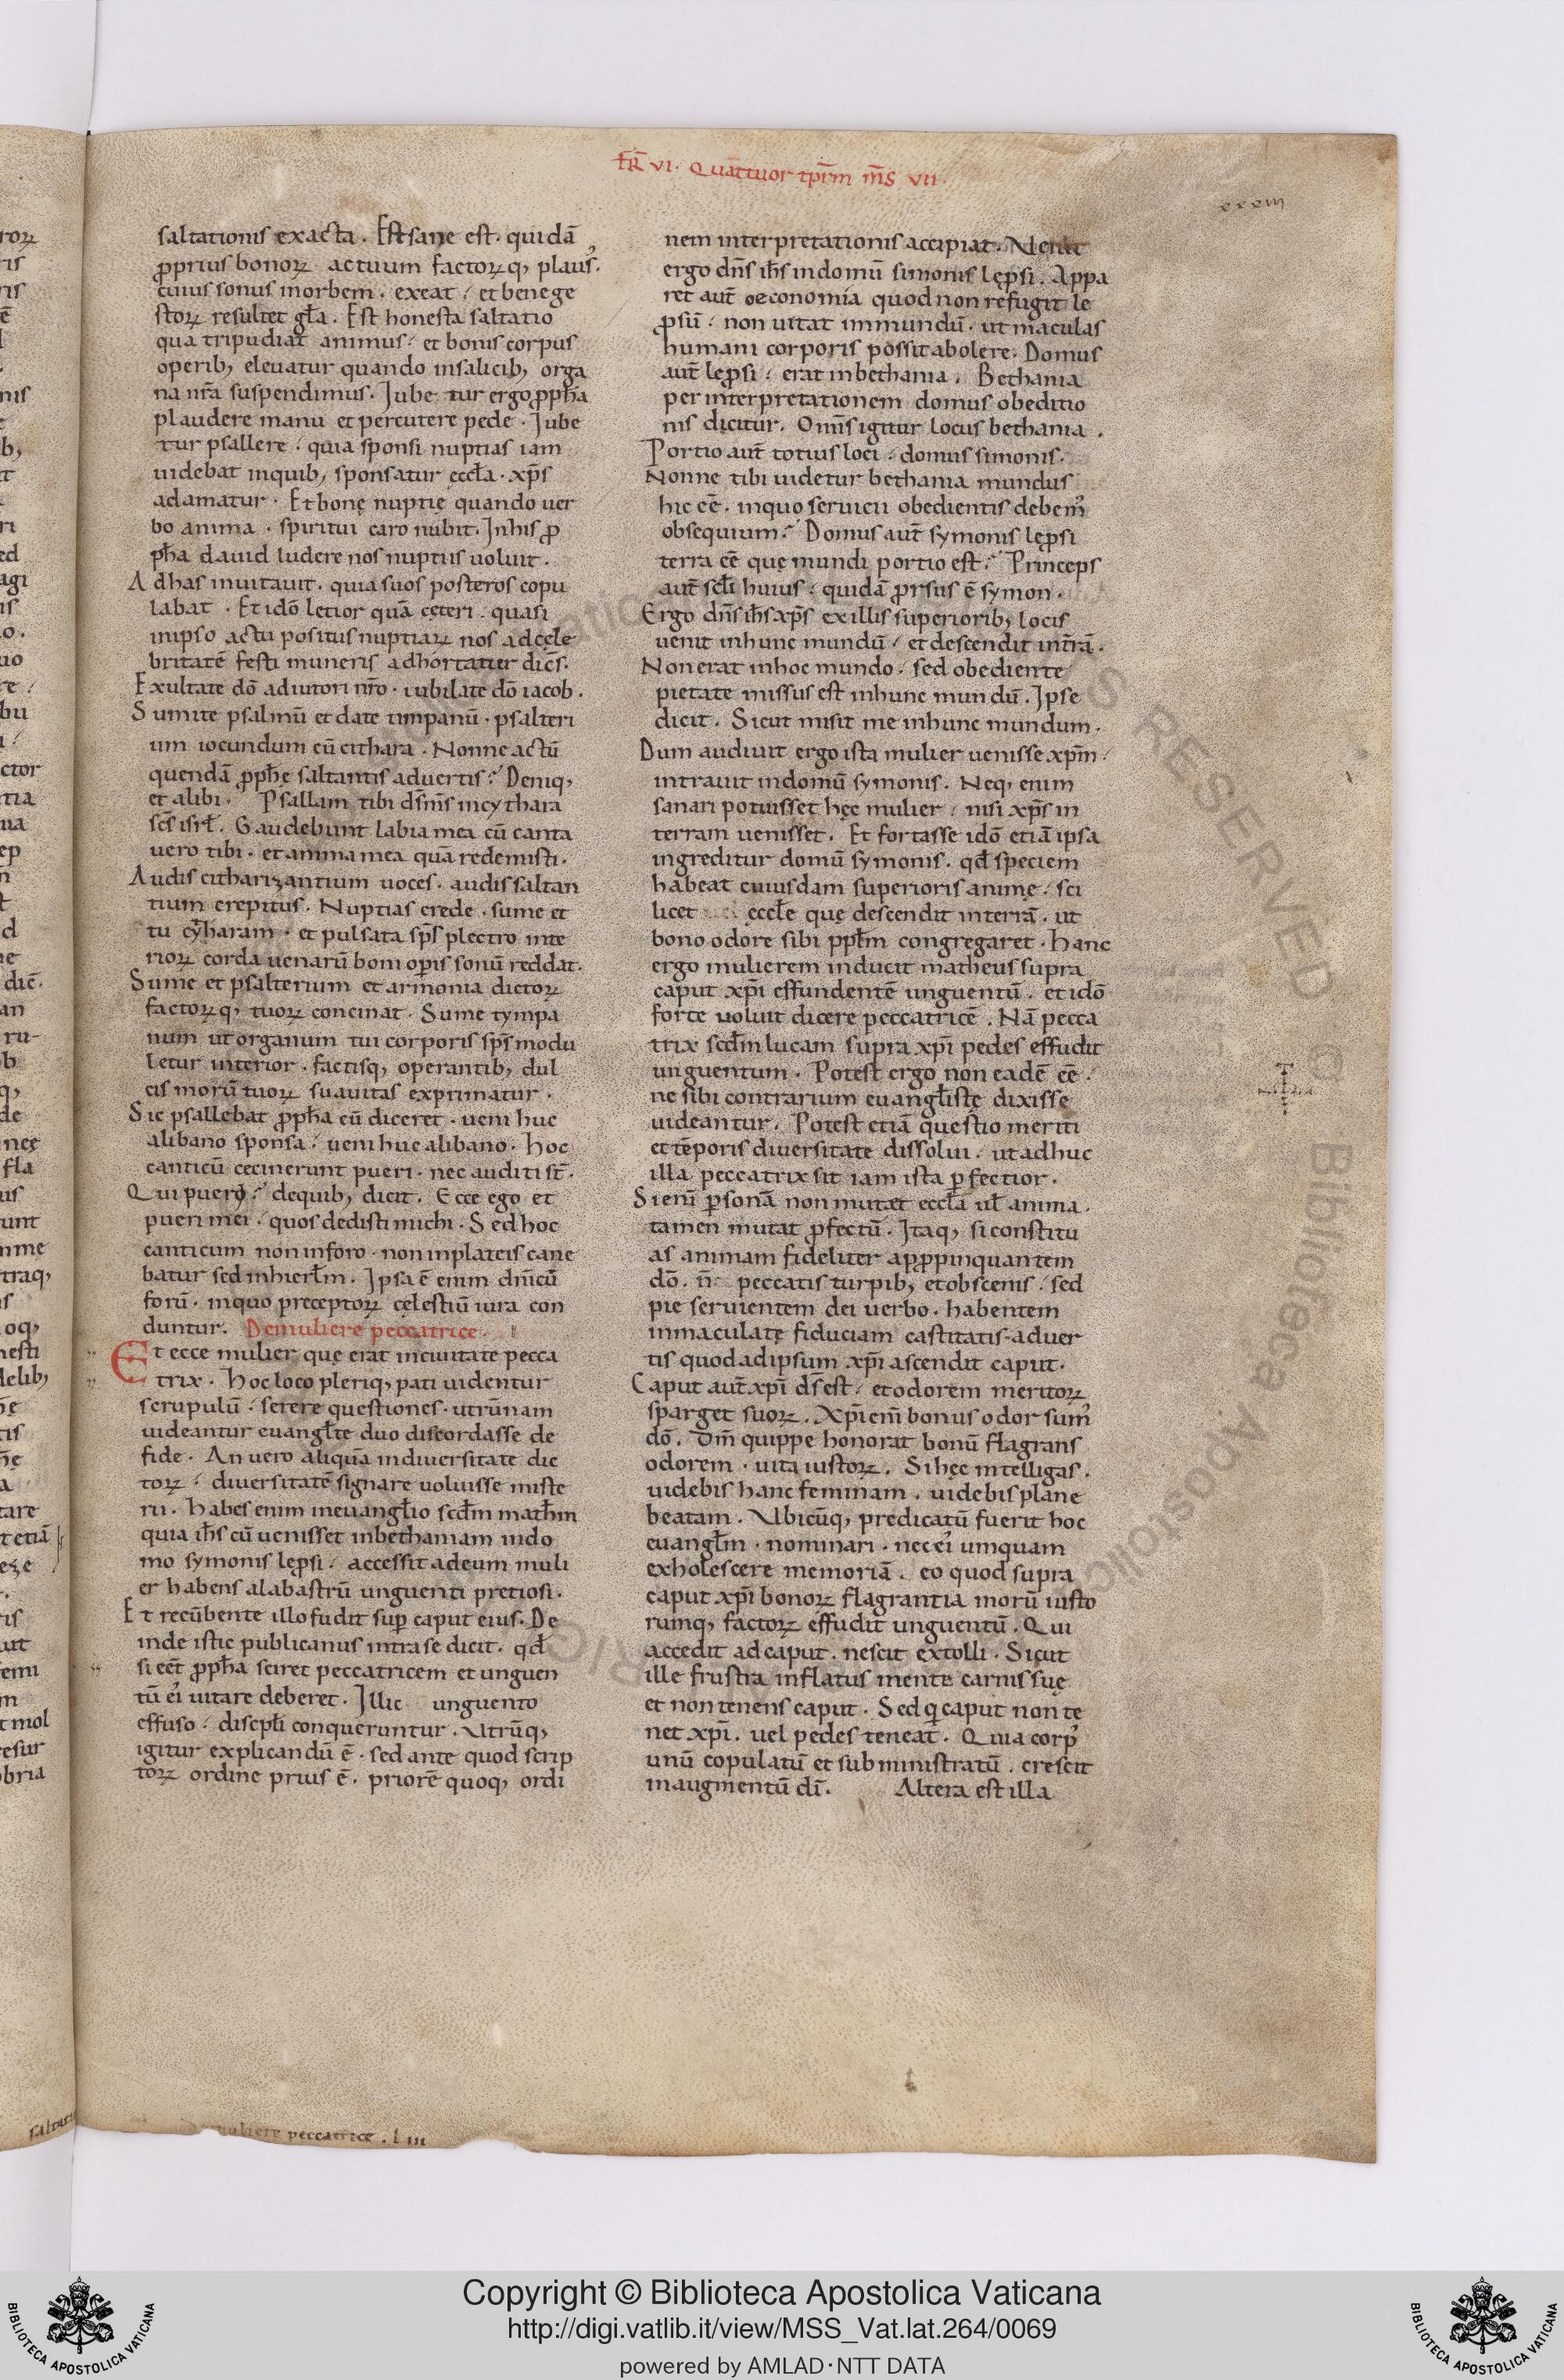 FR̄ VI. Quattuor tp̄rm m̄s VII.
xxxIII
saltationis exacta. Est sane est. quidā
ꝓprius bonoꝝ actuum factoꝝq, plaus᾽.
cuius sonus in orbem. exeat. et bene ge
stoꝝ resultet gła. Est honesta saltatio
qua tripudiat animus. et bonis corpus
operib, elevatur quando in salicib, orga
na nr̄a suspendimus. Jubetur ergo ꝓpħa
plaudere manu et percutere pede. Jube
tur psallere. quia sponsi nuptias iam
uidebat in quib, sponsatur ęccła. xp̄s
adamatur. Et bonę nuptię quando uer
bo anima. spiritui caro nubit. In his ꝓ
pħa dauid ludere nos nuptiis uoluit.
Ad has inuitauit. quia suos posteros copu
labat. Et idō letior quā cęteri. quasi
in ipso actu positus nuptiaꝝ nos ad cęle
britatē festi muneris adhortatur dicēs.
Exultate dō adiutori nr̄o. iubilate dō iacob.
Sumite psalmū et date timpanū. psalteri
um iocundum cū cithara. Nonne actū
quendā ꝓpħę saltantis aduertis? Deniq,
et alibi. Psallam tibi ds̄ ms̄ in cythara
sc̄s isrł. Gaudebunt labia mea cū canta
uero tibi. et anima mea quā redemisti.
Audis citharizantium uoces. audis saltan
tium crepitus. Nuptias crede. sume et
tu cytharam. et pulsata sp̄s plectro inte
rioꝝ corda uenarū boni oꝑis sonū reddat.
Sume et psalterium et armonia dictoꝝ
factoꝝq, tuoꝝ concinat. Sume tympa
num ut organum tui corporis sp̄s modu
letur interior. factisq, operantib, dul
cis morū tuoꝝ suauitas exprimatur.
Sic psallebat ꝓpħa cū diceret. ueni huc
a libano sponsa. ueni huc a libano. Hoc
canticū cecinerunt pueri. nec auditi st̄.
Qui pueri? de quib, dicit. Ecce ego et
pueri mei. quos dedisti michi. Sed hoc
canticum non in foro. non in plateis cane
batur sed in hierłm. Ipsa ē enim dn̄icū
forū. in quo preceptoꝝ cęlestiū iura con
duntur. De muliere peccatrice.
Et ecce mulier quę erat in ciuitate pecca
trix. Hoc loco pleriq, pati uidentur
scrupulū. serere questiones. utrūnam
uideantur euangłte duo discordasse de
fide. An uero aliquā in diuersitate dic
toꝝ. diuersitatē signare uoluisse miste
rii. Habes enim in euangłio scd̄m matħm
quia ih̄s cū uenisset in bethaniam in do
mo symonis leꝓsi. accessit ad eum muli
er habens alabastrū unguenti pretiosi.
Et recūbente illo fudit suꝑ caput eius. De
inde istic publicanus intra se dicit. qđ
si eēt ꝓpħa sciret peccatricem et unguen
tū ei᾽ uitare deberet. Illic unguento
effuso. discipłi conqueruntur. Utrūq,
igitur explicandū ē. sed ante quod scrip
toꝝ ordine prius ē. priorē quoq, ordi
nem interpretationis accipiat. Uenit
ergo dn̄s ih̄s in domū simonis leꝓsi. Appa
ret aut̄ oeconomia quod non refugit le
ꝓsū. non uitat immundū. ut maculas
humani corporis possit abolere. Domus
aut̄ leꝓsi. erat in bethania. Bethania
per interpretationem domus obeditio
nis dicitur. Omīs igitur locus bethania.
Portio aut̄ totius loci. domus simonis.
Nonne tibi uidetur bethania mundus
hic eē. in quo seruicii obedientis debem᾽
obsequium? Domus aut̄ symonis leꝓsi
terra eē quę mundi portio est? Princeps
aut̄ scłi huius. quidā ꝓrsus ē symon.
Ergo dn̄s ih̄s xp̄s ex illis superiorib, locis
uenit in hunc mundū. et descendit in t̄rā.
Non erat in hoc mundo. sed obediente
pietate missus est in hunc mundū. Ipse
dicit. Sicut misit me in hunc mundum.
Dum audiuit ergo ista mulier uenisse xp̄m.
intrauit in domū symonis. Neq, enim
sanari potuisset hęc mulier. nisi xp̄s in
terram uenisset. Et fortasse idō etiā ipsa
ingreditur domū symonis. qđ speciem
habeat cuiusdam superioris animę. sci
licet ęccłe quę descendit in terrā. ut
bono odore sibi ppłm congregaret. Hanc
ergo mulierem inducit matheus supra
caput xp̄i effundentē unguentū. et idō
forte uoluit dicere peccatricē. Nā pecca
trix scd̄m lucam supra xp̄i pedes effudit
unguentum. Potest ergo non eadē eē.
ne sibi contrarium euangłistę dixisse
uideantur. Potest etiā questio meriti
et tēporis diuersitate dissolui. ut adhuc
illa peccatrix sit iam ista ꝑfectior.
Si eni ꝑsonā non mutat ęccła ul̄ anima.
tamen mutat ꝓfectū. Itaq, si constitu
as animam fideliter apꝓpinquantem
dō. n̄ peccatis turpib, et obscenis. sed
pie seruientem dei uerbo. habentem
inmaculatę fiduciam castitatis. aduer
tis quod ad ipsum xp̄i ascendit caput.
Caput aut̄ xp̄i ds̄ est. et odorem meritoꝝ
sparget suoꝝ. Xp̄i eni bonus odor sum᾽
dō. Dm̄ quippe honorat bonū flagrans
odorem. uita iustoꝝ. Si hęc intelligas.
uidebis hanc feminam. uidebis plane
beatam. Ubicūq, predicatū fuerit hoc
euangłm. nominari. nec ei᾽ umquam
exholescere memoriā. eo quod supra
caput xp̄i bonoꝝ flagrantia morū iusto
rumq, factoꝝ effudit unguentū. Qui
accedit ad caput. nescit extolli. Sicut
ille frustra inflatus mente carnis suę
et non tenens caput. Sed q̄ caput non te
net xp̄i. uel pedes teneat. Quia corp᾽
unū copulatū et subministratū. crescit
in augmentū di. Altera est illa
muliere peccatrice. LIII
Copyright © Biblioteca Apostolica Vaticana
http://digi.vatlib.it/view/MSS_Vat.lat.264/0069
powered by AMLAD・NTT DATA
BIBLIOTECA APOSTOLICA VATICANA
BIBLIOTECA APOSTOLICA VATICANA